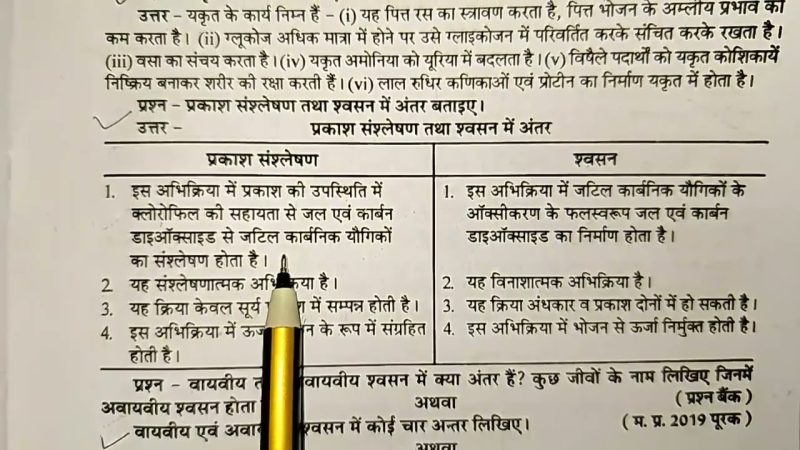 उत्तर – यकृत के कार्य निम्न हैं – (i) यह पित्त रस का स्त्रावण करता है, पित्त भोजन के अम्लीय प्रभाव को
कम करता है। (ii) ग्लूकोज अधिक मात्रा में होने पर उसे ग्लाइकोजन में परिवर्तित करके संचित करके रखता है।
(iii) वसा का संचय करता है। (iv) यकृत अमोनिया को यूरिया में बदलता है। (v) विषैले पदार्थों को यकृत कोशिकायें
निष्क्रिय बनाकर शरीर की रक्षा करती हैं। (vi) लाल रुधिर कणिकाओं एवं प्रोटीन का निर्माण यकृत में होता है।
प्रश्न – प्रकाश संश्लेषण तथा श्वसन में अंतर बताइए।
उत्तर – प्रकाश संश्लेषण तथा श्वसन में अंतर
प्रकाश संश्लेषण
1. इस अभिक्रिया में प्रकाश की उपस्थिति में
क्लोरोफिल की सहायता से जल एवं कार्बन
डाइऑक्साइड से जटिल कार्बनिक यौगिकों
का संश्लेषण होता है।
2. यह संश्लेषणात्मक है।
3. यह क्रिया केवल सूर्य में सम्पन्न होती है।
4. इस अभिक्रिया में के रूप में संग्रहित
होती है।
श्वसन
1. इस अभिक्रिया में जटिल कार्बनिक यौगिकों के
ऑक्सीकरण के फलस्वरूप जल एवं कार्बन
डाइऑक्साइड का निर्माण होता है।
2. यह विनाशात्मक अभिक्रिया है।
3. यह क्रिया अंधकार व प्रकाश दोनों में हो सकती है।
4. इस अभिक्रिया में भोजन से ऊर्जा निर्मुक्त होती है।
प्रश्न – वायवीय श्वसन में क्या अंतर हैं? कुछ जीवों के नाम लिखिए जिनमें
अवायवीय श्वसन होता अथवा ( प्रश्न बैंक )
वायवीय एवं श्वसन में कोई चार अन्तर लिखिए। ( म. प्र. 2019 पूरक )
अथवा